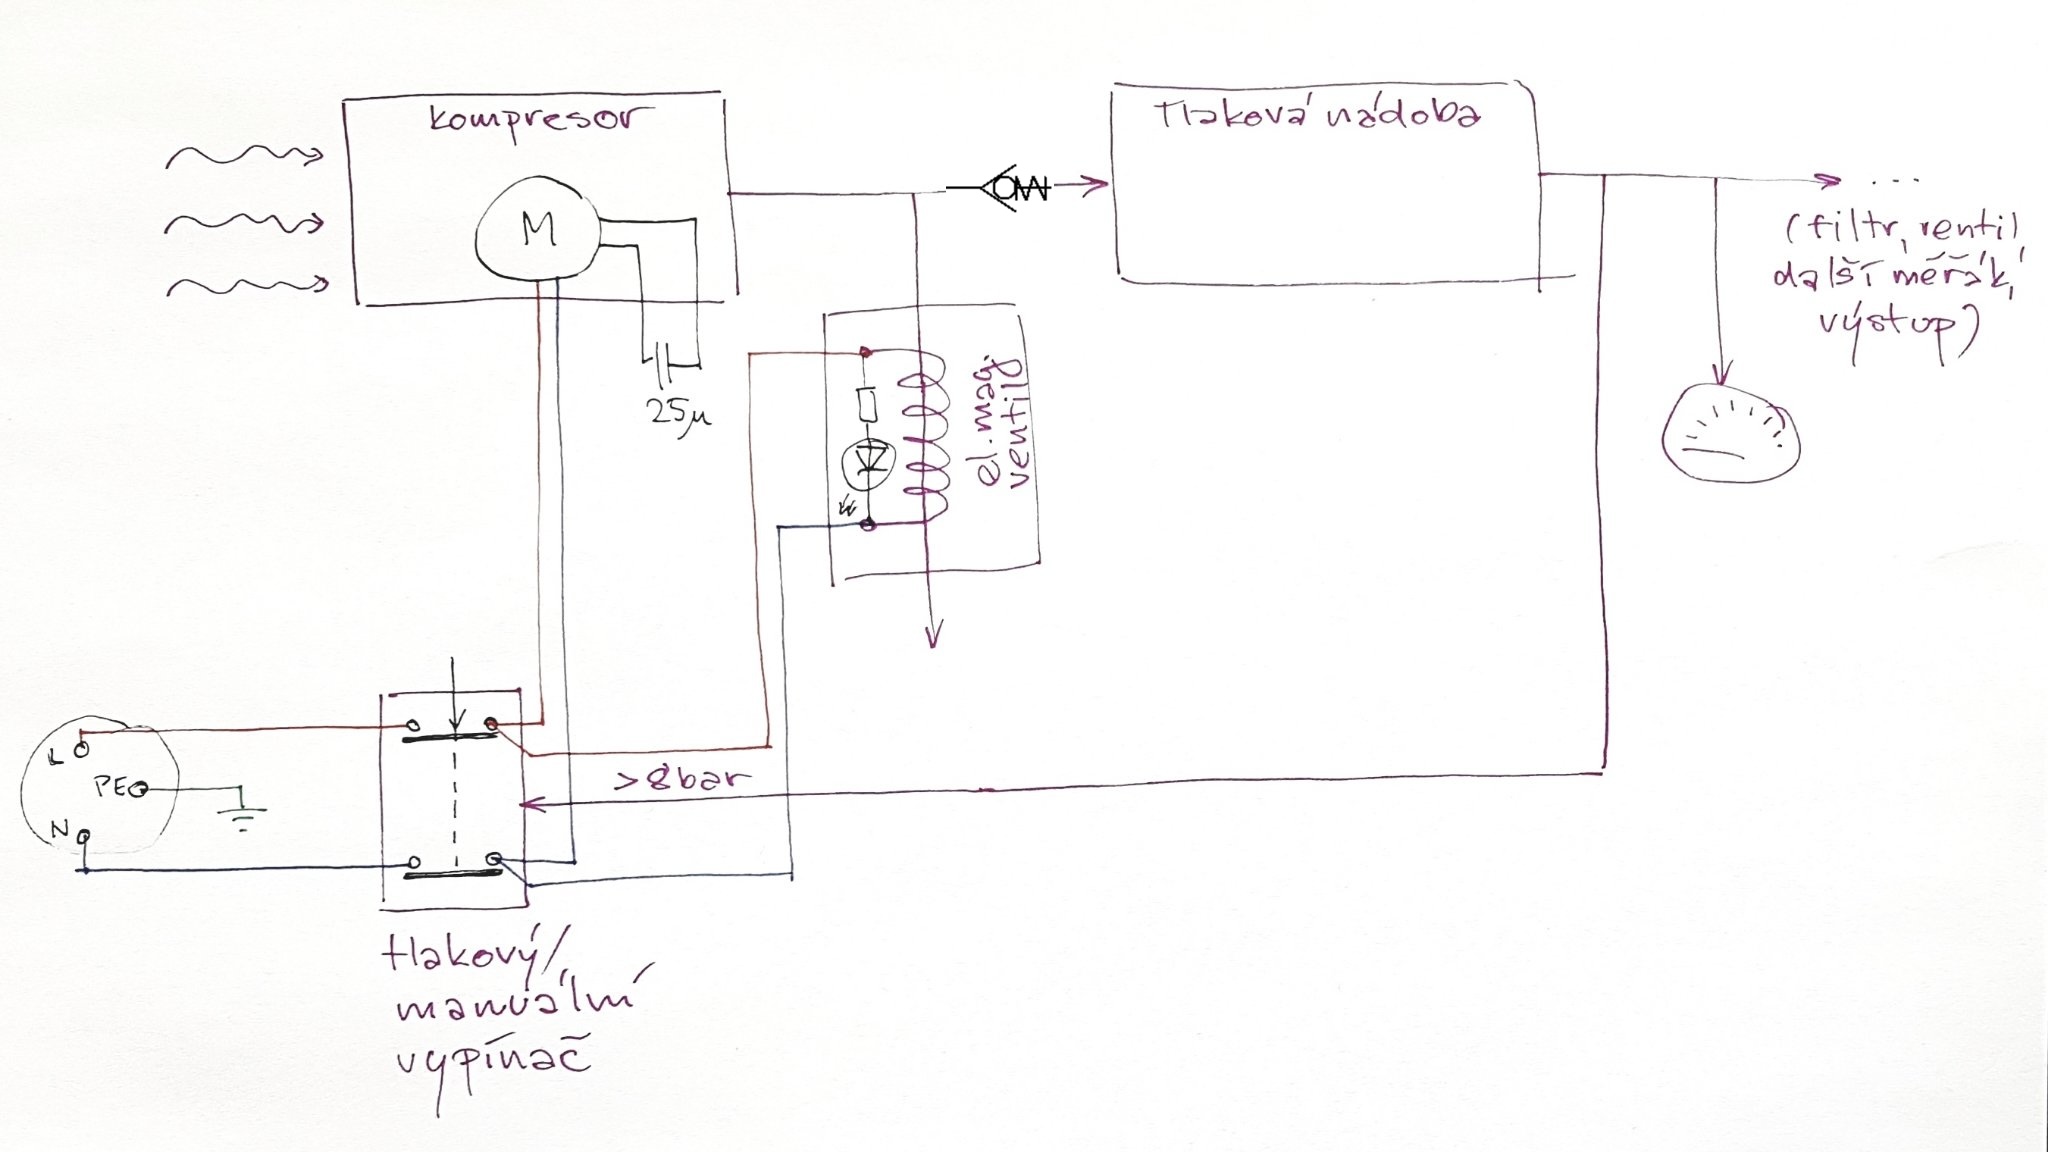 kompresor
Tlaková nádoba
M
...
(filtr, ventil,
další měřák,
výstup)
25μ
el. mag.
ventil
L
PE
N
>8bar
tlakový/
manuální
vypínač